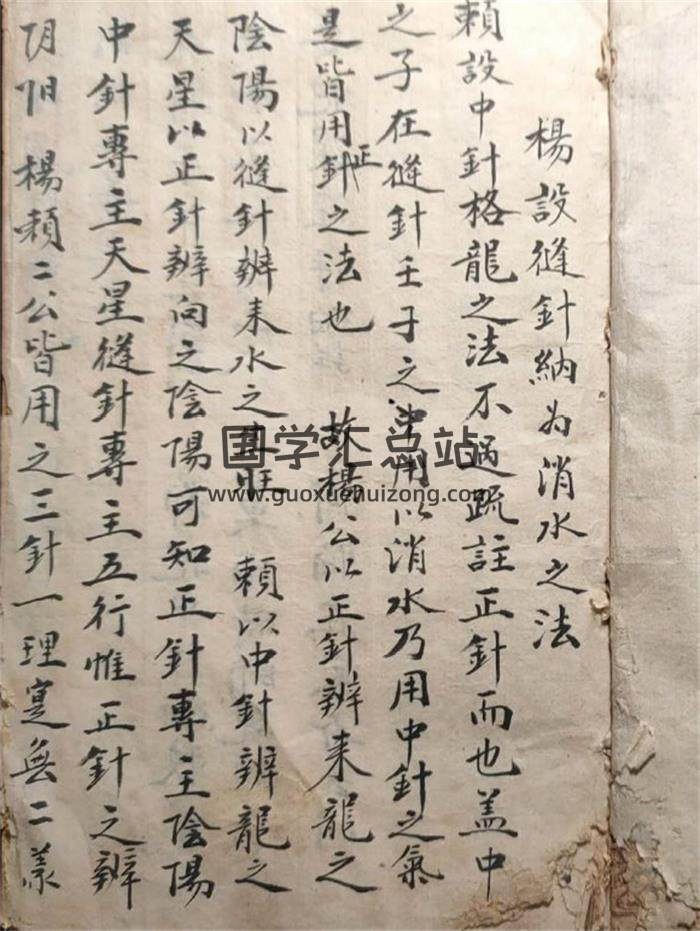 楊設縫針納为消水之法
賴設中針格龍之法不過疏註正針而也盖中
之子在縫針壬子之中用以消水乃用中針之氣
是皆用正針之法也 故楊公以正針辨来龍之
陰陽以縫針辨来水之旺 賴以中針辨龍之
天星以正針辨向之陰陽可知正針專主陰陽
中針專主天星縫針專主五行惟正針之辨
阴阳 楊賴二公皆用之三針一理寔無二義
国学汇总站
www.guoxuehuizong.com